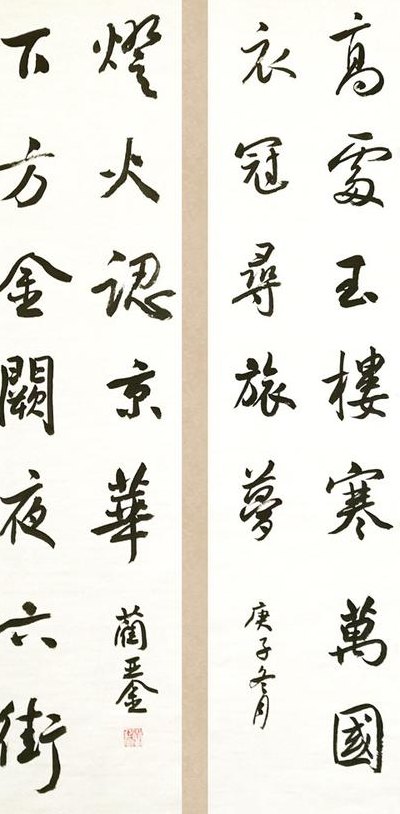 高處玉樓寒萬國
衣冠尋旅夢
庚子冬月
下方金闕夜六街
燈火認京華